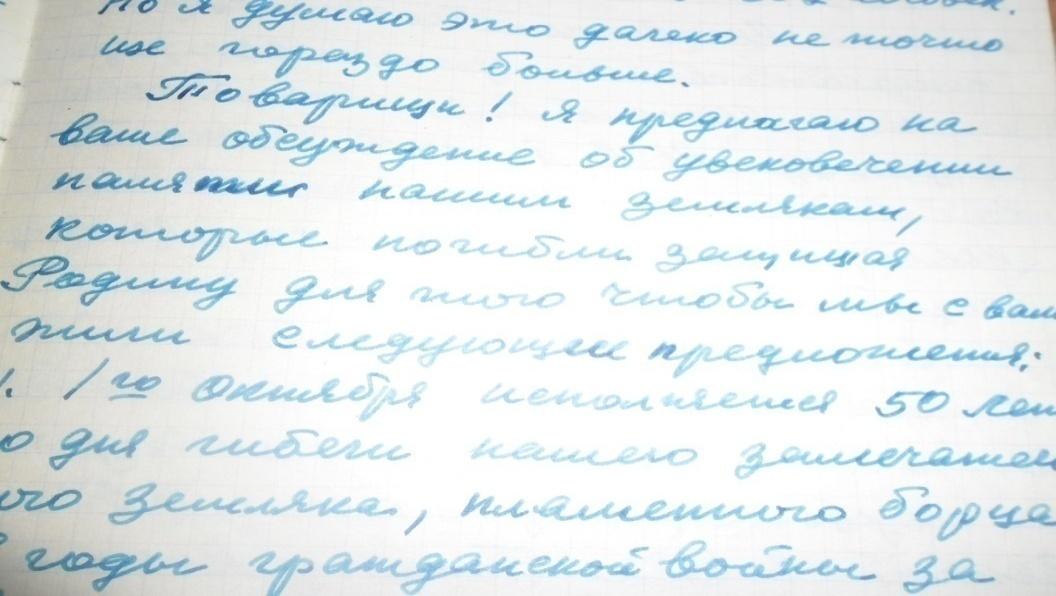 Но я думаю это далеко не точно
их гораздо больше.
Товарищи! Я предлагаю на
ваше обсуждение об увековечении
памяти нашим землякам,
которые погибли защищая
Родину для того чтобы мы с вами
жили следующие предложения:
1. 1го октября исполняется 50 лет
со дня гибели нашего замечатель
ного земляка, пламенного борца
в годы гражданской войны за